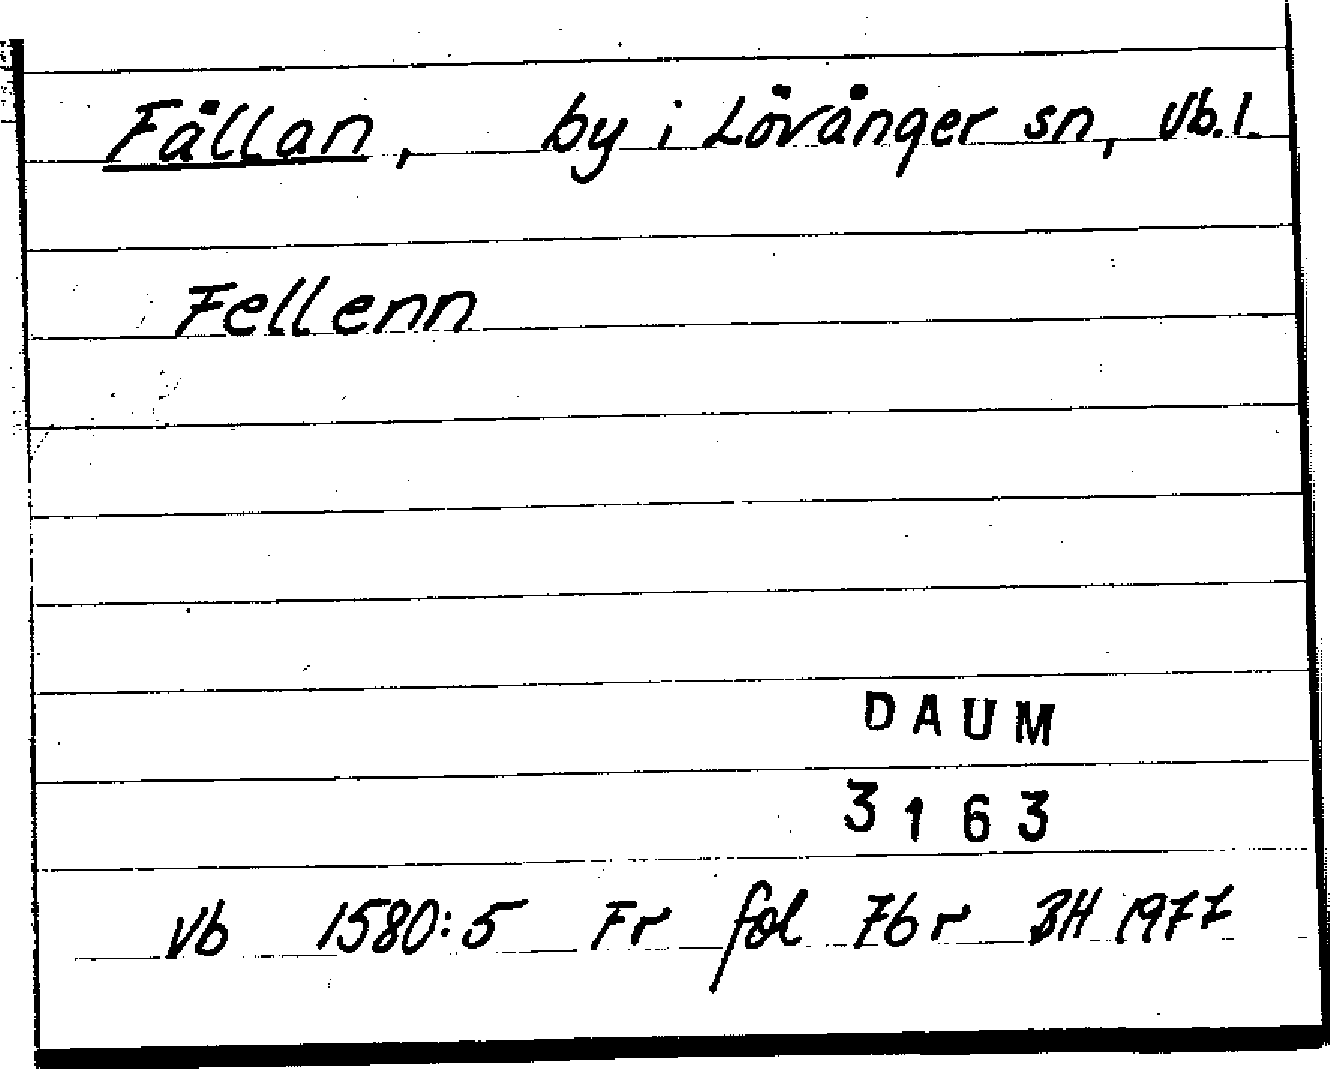 Fällan, by i Lövånger sn, Vb.l.
Fellenn
DAUM
3163
Vb 1580:5 Fr fol 76r BH 1977